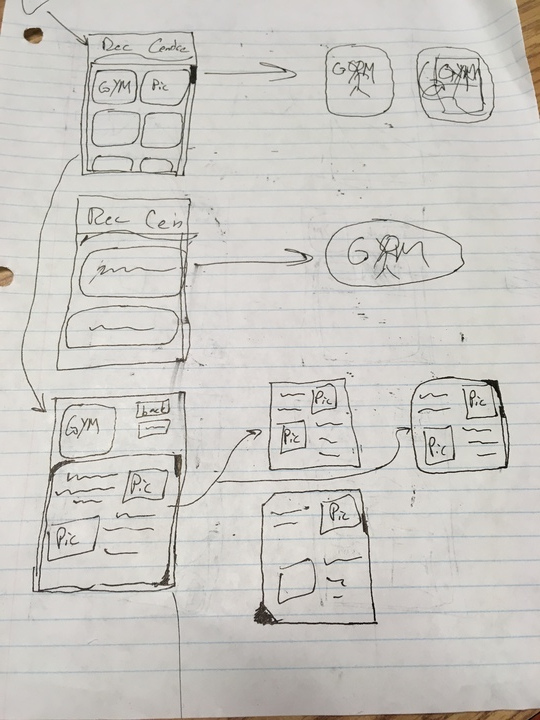 Rec Center
GYM Pic
GYM
GYM
Rec Cen
GYM
GYM
back
Pic
Pic
Pic
Pic
Pic
Pic
Pic